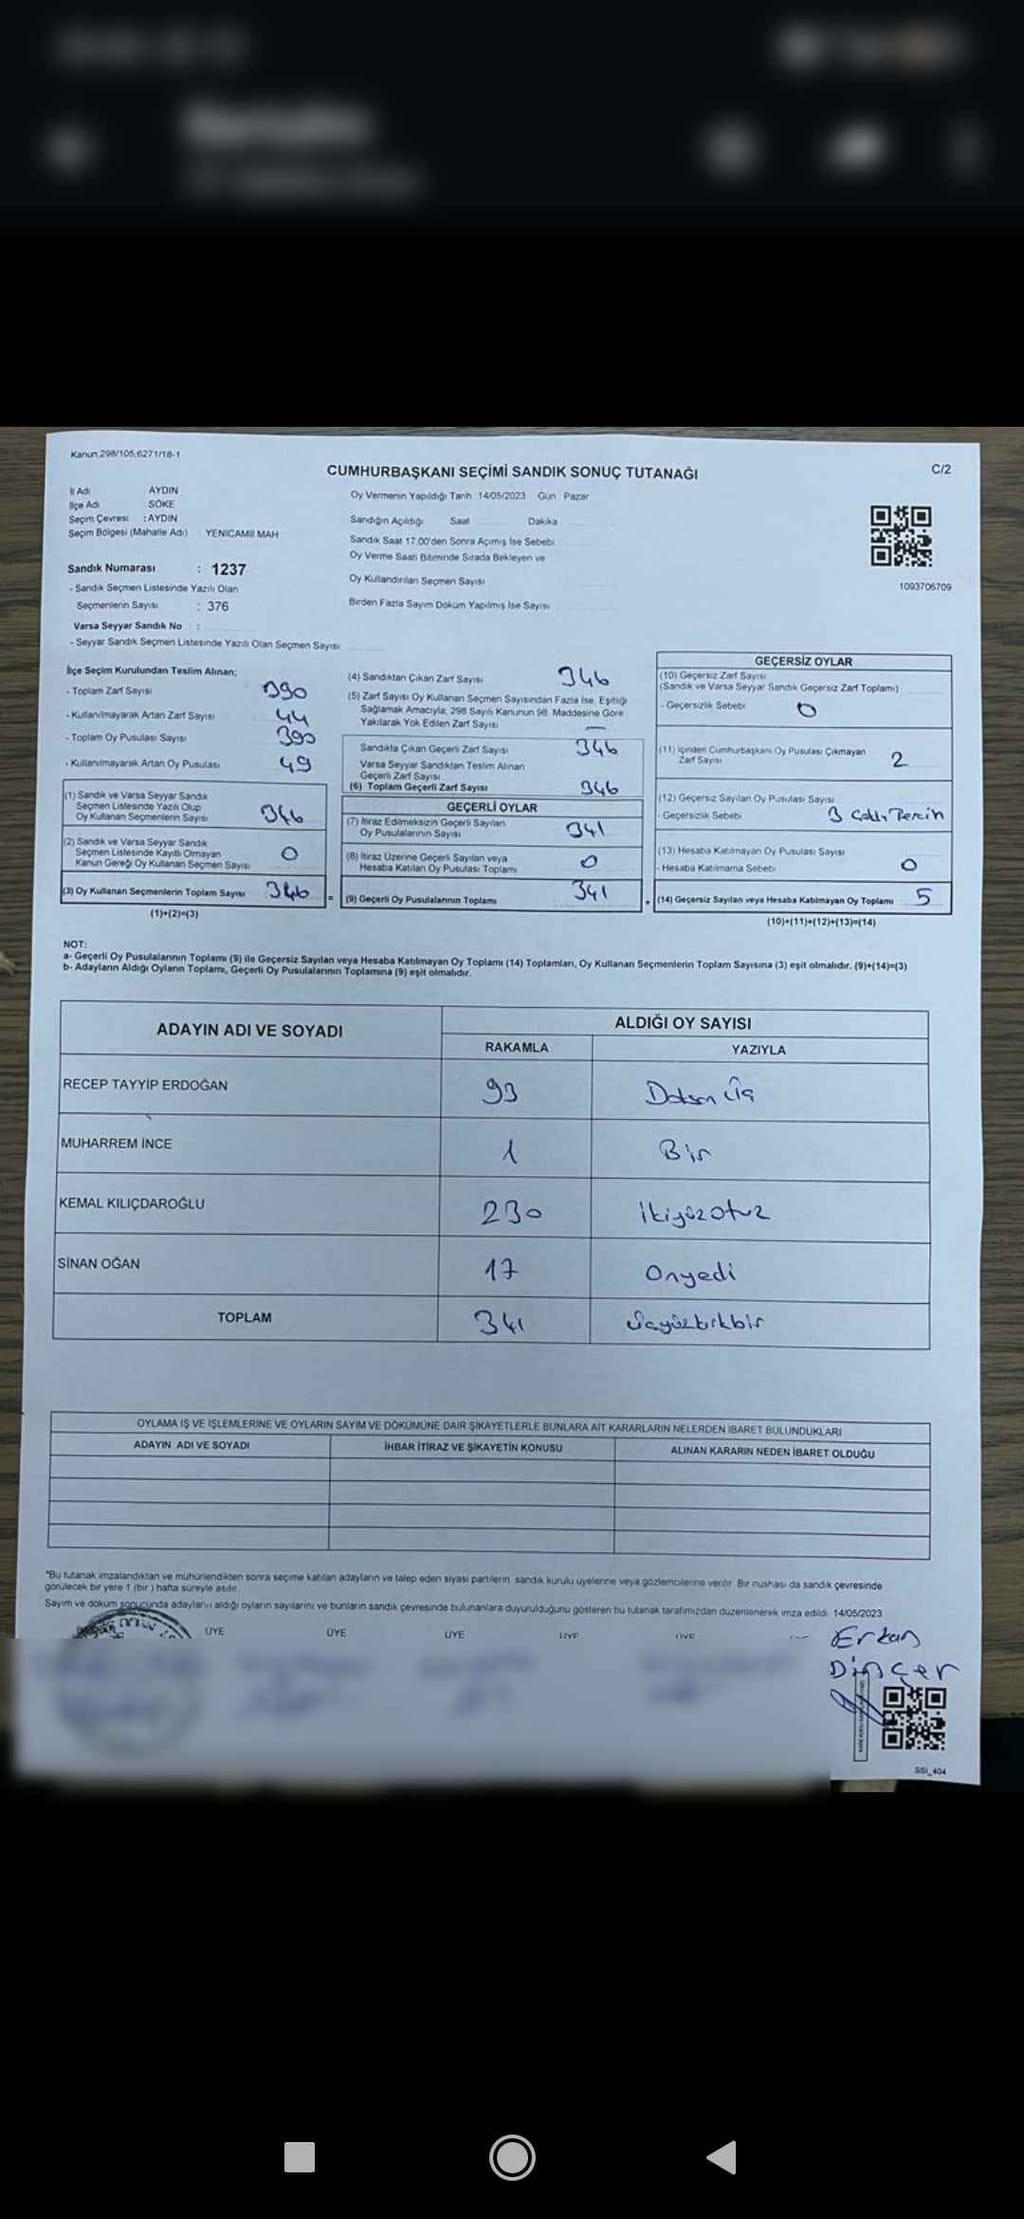 Kanun 298/105,6271/18-1
CUMHURBAŞKANI SEÇİMİ SANDIK SONUÇ TUTANAĞI
C/2
İl Adı AYDIN
İlçe Adı : SÖKE
Seçim Çevresi : AYDIN
Seçim Bölgesi (Mahalle Adı) YENİCAMİİ MAH
Oy Vermenin Yapıldığı Tarih : 14/05/2023 Gün : Pazar
Sandığın Açıldığı Saat Dakika
Sandık Saat 17.00'den Sonra Açımış İse Sebebi
Oy Verme Saati Bitiminde Sırada Bekleyen ve
Oy Kullandırılan Seçmen Sayısı
Birden Fazla Sayım Döküm Yapılmış İse Sayısı
1093706709
Sandık Numarası : 1237
- Sandık Seçmen Listesinde Yazılı Olan
Seçmenlerin Sayısı : 376
Varsa Seyyar Sandık No :
- Seyyar Sandık Seçmen Listesinde Yazılı Olan Seçmen Sayısı
İlçe Seçim Kurulundan Teslim Alınan;
- Toplam Zarf Sayısı 390
- Kullanılmayarak Artan Zarf Sayısı 44
- Toplam Oy Pusulası Sayısı 390
- Kullanılmayarak Artan Oy Pusulası 49
(1) Sandık ve Varsa Seyyar Sandık
Seçmen Listesinde Yazılı Olup
Oy Kullanan Seçmenlerin Sayısı 346
(2) Sandık ve Varsa Seyyar Sandık
Seçmen Listesinde Kayıtlı Olmayan
Kanun Gereği Oy Kullanan Seçmen Sayısı 0
(3) Oy Kullanan Seçmenlerin Toplam Sayısı 346 =
(1)+(2)=(3)
(4) Sandıktan Çıkan Zarf Sayısı 346
(5) Zarf Sayısı Oy Kullanan Seçmen Sayısından Fazla İse, Eşitliği
Sağlamak Amacıyla; 298 Sayılı Kanunun 98. Maddesine Göre
Yakılarak Yok Edilen Zarf Sayısı —
Sandıkta Çıkan Geçerli Zarf Sayısı 346
Varsa Seyyar Sandıktan Teslim Alınan
Geçerli Zarf Sayısı
(6) Toplam Geçerli Zarf Sayısı 346
GEÇERLİ OYLAR
(7) İtiraz Edilmeksizin Geçerli Sayılan
Oy Pusulalarının Sayısı 341
(8) İtiraz Üzerine Geçerli Sayılan veya
Hesaba Katılan Oy Pusulası Toplamı 0
(9) Geçerli Oy Pusulalarının Toplamı 341 +
GEÇERSİZ OYLAR
(10) Geçersiz Zarf Sayısı
(Sandık ve Varsa Seyyar Sandık Geçersiz Zarf Toplamı)
- Geçersizlik Sebebi 0
(11) İçinden Cumhurbaşkanı Oy Pusulası Çıkmayan
Zarf Sayısı 2
(12) Geçersiz Sayılan Oy Pusulası Sayısı
- Geçersizlik Sebebi 3
(13) Hesaba Katılmayan Oy Pusulası Sayısı
- Hesaba Katılmama Sebebi 0
(14) Geçersiz Sayılan veya Hesaba Katılmayan Oy Toplamı 5
(10)+(11)+(12)+(13)=(14)
NOT:
a- Geçerli Oy Pusulalarının Toplamı (9) ile Geçersiz Sayılan veya Hesaba Katılmayan Oy Toplamı (14) Toplamları, Oy Kullanan Seçmenlerin Toplam Sayısına (3) eşit olmalıdır. (9)+(14)=(3)
b- Adayların Aldığı Oyların Toplamı, Geçerli Oy Pusulalarının Toplamına (9) eşit olmalıdır.
ADAYIN ADI VE SOYADI ALDIĞI OY SAYISI
RAKAMLA YAZIYLA
RECEP TAYYİP ERDOĞAN 93 Doksan Üç
MUHARREM İNCE 1 Bir
KEMAL KILIÇDAROĞLU 230 ikiyüzotuz
SİNAN OĞAN 17 Onyedi
TOPLAM 341 üçyüzkırkbir
OYLAMA İŞ VE İŞLEMLERİNE VE OYLARIN SAYIM VE DÖKÜMÜNE DAİR ŞİKAYETLERLE BUNLARA AİT KARARLARIN NELERDEN İBARET BULUNDUKLARI
ADAYIN ADI VE SOYADI İHBAR İTİRAZ VE ŞİKAYETİN KONUSU ALINAN KARARIN NEDEN İBARET OLDUĞU
*Bu tutanak imzalandıktan ve mühürlendikten sonra seçime katılan adayların ve talep eden siyasi partilerin sandık kurulu üyelerine veya gözlemcilerine verilir. Bir nushası da sandık çevresinde
görülecek bir yere 1 (bir) hafta süreyle asılır.
Sayım ve döküm sonucunda adayların aldığı oyların sayılarını ve bunların sandık çevresinde bulunanlara duyurulduğunu gösteren bu tutanak tarafımızdan düzenlenerek imza edildi. 14/05/2023
ÜYE ÜYE ÜYE ÜYE ÜYE
Erkan
Dinçer
SSI_404